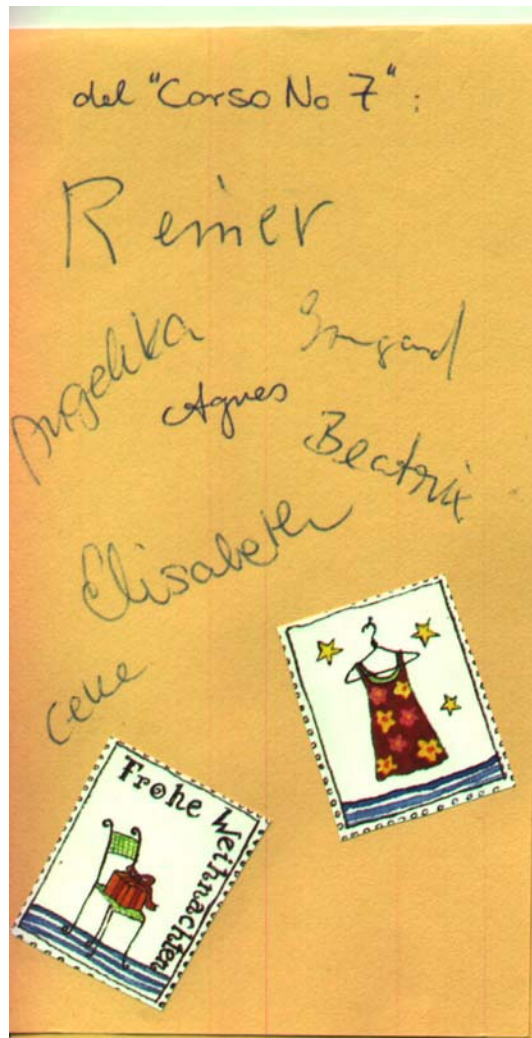 del "Corso No 7":
Reiner
Angelika
Irmgard
Agnes
Beatrix
Elisabeth
Frohe Weihnachten